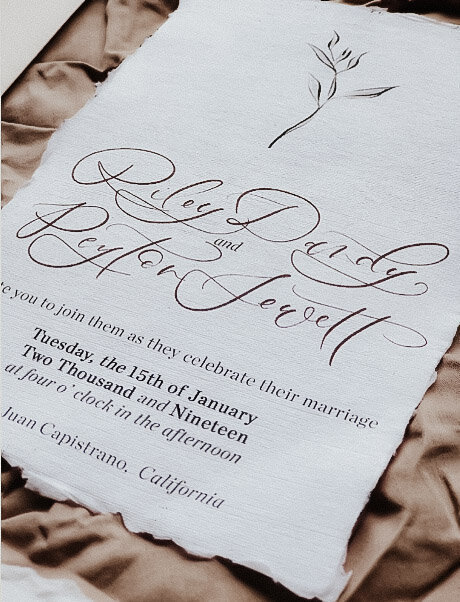 Riley Dandy
and
Peyton Jewett
you to join them as they celebrate their marriage
Tuesday, the 15th of January
Two Thousand and Nineteen
at four o' clock in the afternoon
Juan Capistrano, California